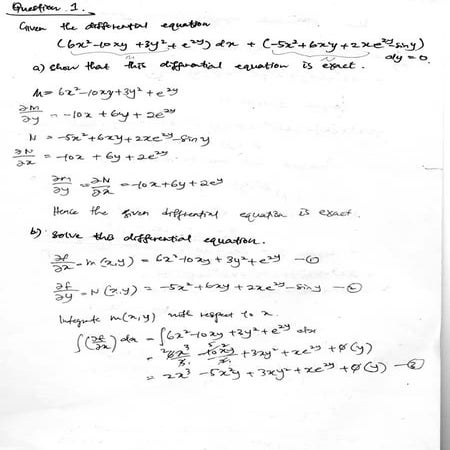 Question 1.
Given the differential equation
(6x²-10xy +3y²+ e²ʸ) dx + (-5x²+6xy+2xe²ʸ-siny) dy = 0.
a) Show that this differential equation is exact.
M= 6x²-10xy+3y²+e²ʸ
∂M/∂y = -10x + 6y + 2e²ʸ
N = -5x²+6xy+2xe²ʸ-sin y
∂N/∂x = -10x + 6y + 2e²ʸ
∂M/∂y = ∂N/∂x = -10x+6y+2e²ʸ
Hence the given differential equation is exact.
b) Solve this differential equation.
∂f/∂x = M (x,y) = 6x²-10xy + 3y²+e²ʸ —①
∂f/∂y = N (x,y) = -5x²+6xy + 2xe²ʸ-siny —②
Integrate M(x,y) with respect to x.
∫(∂f/∂x) dx = ∫6x²-10xy +3y²+e²ʸ dx
= 6x³/3 - 10x²y/2 +3xy²+xe²ʸ+φ(y)
= 2x³ -5x²y + 3xy²+xe²ʸ +φ(y) —③